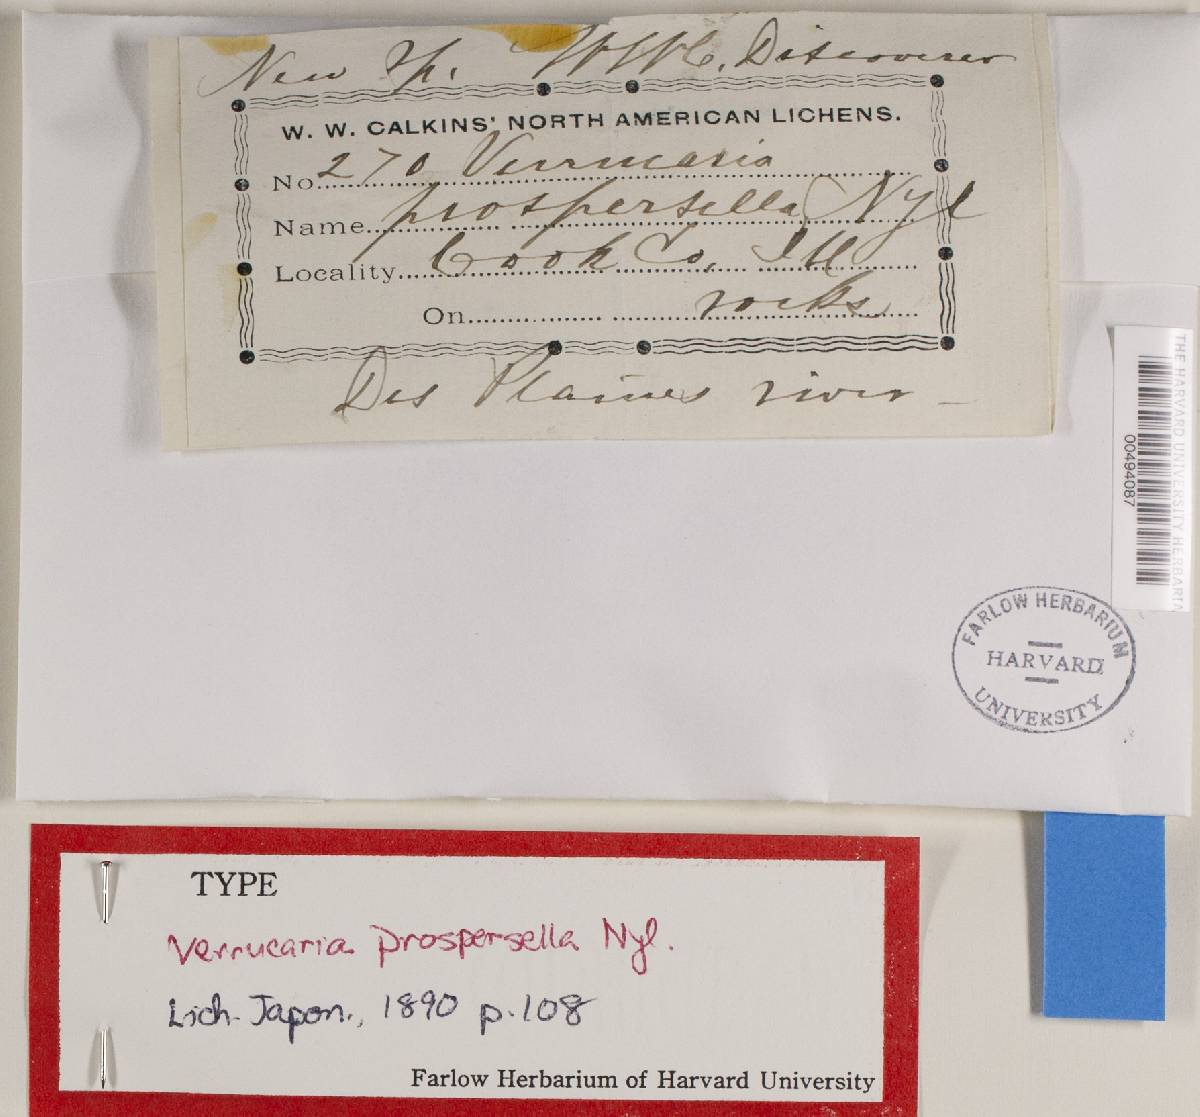 New Sp. WWC. Discoverer
W. W. CALKINS' NORTH AMERICAN LICHENS.
No. 270 Verrucaria
Name. prospersella Nyl
Locality. Cook Co, Ill
On. rocks
Des Plaines river -
THE HARVARD UNIVERSITY HERBARIA
00494087
FARLOW HERBARIUM
HARVARD
UNIVERSITY
TYPE
Verrucaria prospersella Nyl.
Lich. Japon., 1890 p. 108
Farlow Herbarium of Harvard University